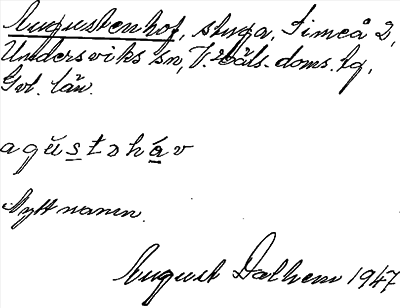 Augustenhof, stuga, Simeå 2,
Undersviks sn, V. Häls. doms. tg,
Gvl. län.
agŭstəháv
Nytt namn.
August Dalhem 1947